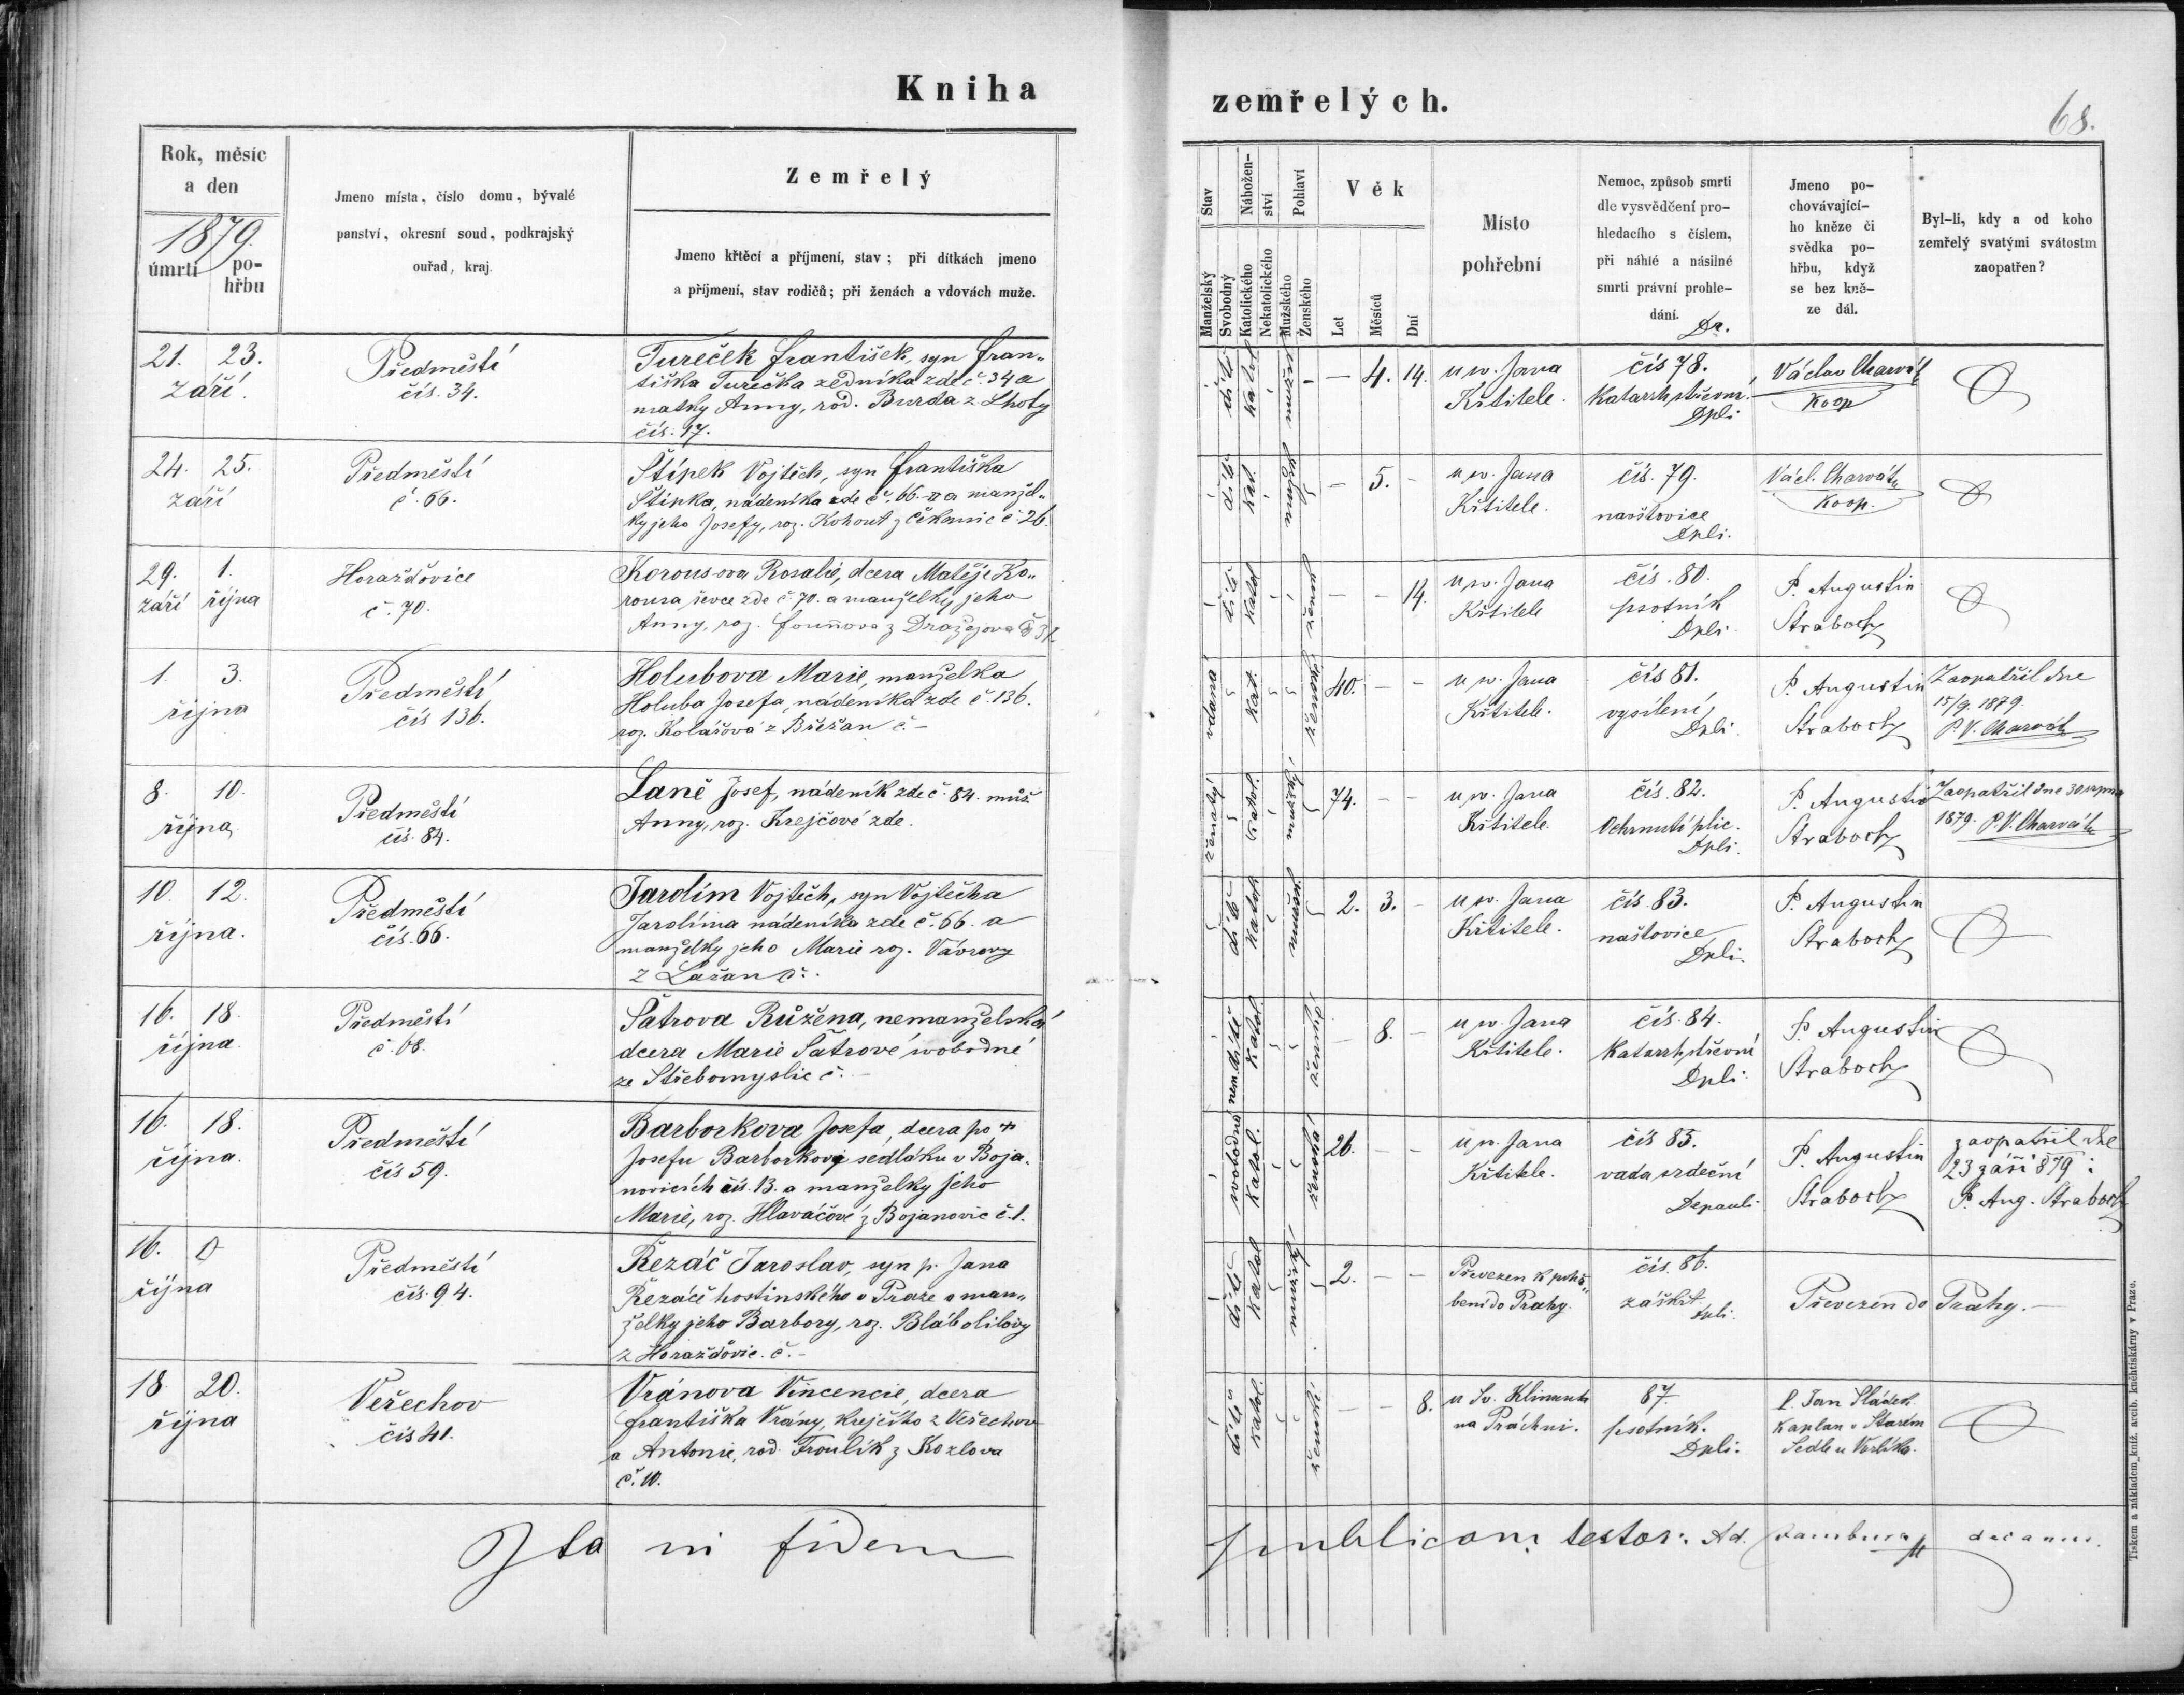 Kniha
zemřelých.
68.
Rok, měsíc
a den
1879.
úmrtí
po-
hřbu
Jmeno místa, číslo domu, bývalé
panství, okresní soud, podkrajský
ouřad, kraj.
Zemřelý
Jmeno křtěcí a příjmení, stav; při dítkách jmeno
a příjmení, stav rodičů; při ženách a vdovách muže.
Stav
Manželský
Svobodný
Nábožen-
ství
Katolického
Nekatolického
Pohlaví
Mužského
Ženského
Věk
Let
Měsíců
Dní
Místo
pohřební
Nemoc, způsob smrti
dle vysvědčení pro-
hledacího s číslem,
při náhlé a násilné
smrti právní prohle-
dání.
Dr.
Jmeno po-
chovávající-
ho kněze či
svědka po-
hřbu, když
se bez kně-
ze dál.
Byl-li, kdy a od koho
zemřelý svatými svátostm
zaopatřen?
21. 23.
září.
Předměstí
čís. 34.
Tureček František, syn Fran-
tiška Turečka zedníka zde č. 34 a
matky Anny, rod. Burda z Lhoty
čís. 17.
dítě
katol
— 4. 14.
u sv. Jana
Křtitele.
čís 78.
Katarrh střevní.
Dpli
Václav Charvát
Koop
24. 25.
září
Předměstí
č. 66.
Štípek Vojtěch, syn Františka
Štípka, nádeníka zde č. 66. a manžel-
ky jeho Josefy, roz. Kohout z Čekanic č. 26.
dítě
kat.
— 5. -
u sv. Jana
Křtitele.
čís. 79.
navštovice
Dpli.
Václ. Charvát
Koop.
29. 1.
září října
Horažďovice
č. 70.
Korousova Rosalie, dcera Matěje Ko-
rousa ševce zde č. 70. a manželky jeho
Anny, roz. z Dražejova
dítě
katol
žensk
— - 14.
u sv. Jana
Křtitele
čís. 80.
psotník
Dpli.
P. Augustin
Straboch
1. 3.
října
Předměstí
čís 136.
Holubova Marie, manželka
Holuba Josefa, nádeníka zde č. 136.
roz. Kolářová z Břežan č. -
vdana
kat.
ženské
40. - -
u sv. Jana
Křtitele.
čís 81.
vysílení
Dpli.
P. Augustin
Straboch
Zaopatřil dne
15/9. 1879.
P. V. Charvát
8. 10.
října
Předměstí
čís. 84.
Laně Josef, nádeník zde č. 84. muž
Anny, roz. Krejčové zde.
ženatý
katol.
mužský
74. - -
u sv. Jana
Křtitele.
čís. 82.
Ochrnutí plic.
Dpli.
P. Augustin
Straboch
Zaopatřil dne 30 srpna
1879. P. V. Charvát
10. 12.
října.
Předměstí
čís. 66.
Jarolím Vojtěch, syn Vojtěcha
Jarolíma nádeníka zde č. 66. a
manželky jeho Marie roz. Vávrovy
z Lažan č.
dítě
katol.
mužsk.
2. 3. -
u sv. Jana
Křtitele.
čís. 83.
naštovice
Dpli.
P. Augustin
Straboch
16. 18.
října.
Předměstí
č. 68.
Šatrova Růžena, nemanželská
dcera Marie Šatrové svobodné
ze Střebomyslic č. -
nem. dítě
katol.
ženské
— 8. -
u sv. Jana
Křtitele.
čís. 84.
Katarrh střevní
Dpli.
P. Augustin
Straboch
16. 18.
října.
Předměstí
čís 59.
Barborkova Josefa, dcera po †
Josefu Barborkovi sedláku v Boja-
novicích čís. 13. a manželky jeho
Marie, roz. Hlaváčové z Bojanovic č. 1.
svobodná
katol.
ženská
26. - -
u sv. Jana
Křtitele.
čís 85.
vada srdeční
Depauli
P. Augustin
Straboch
zaopatřil dne
23 září 879:
P. Aug. Straboch
16. 0
října
Předměstí
čís. 94.
Řezáč Jaroslav, syn p. Jana
Řezáče hostinského v Praze a man-
želky jeho Barbory, roz. Blábolilovy
z Horažďovic. č. -
dítě
katol
mužský
2. - -
Převezen k pohř-
bení do Prahy.
čís. 86.
záškrt
Dpli.
Převezen do Prahy. -
18. 20.
října
Veřechov
čís 41.
Vránova Vincencie, dcera
Františka Vrány, krejčího z Veřechova
a Antonie, rod. Froulík z Kozlova
č. 10.
dítě
katol.
ženské
— - 8.
u Sv. Klimenta
na Práchni.
87.
psotník.
Dpli.
P. Jan Sládek
Kaplan v Starém
Sedle u Vorlíka.
Ita in fidem
publicam testor: Ad. decanus.
Tiskem a nákladem kníž. arcib. knihtiskárny v Praze.